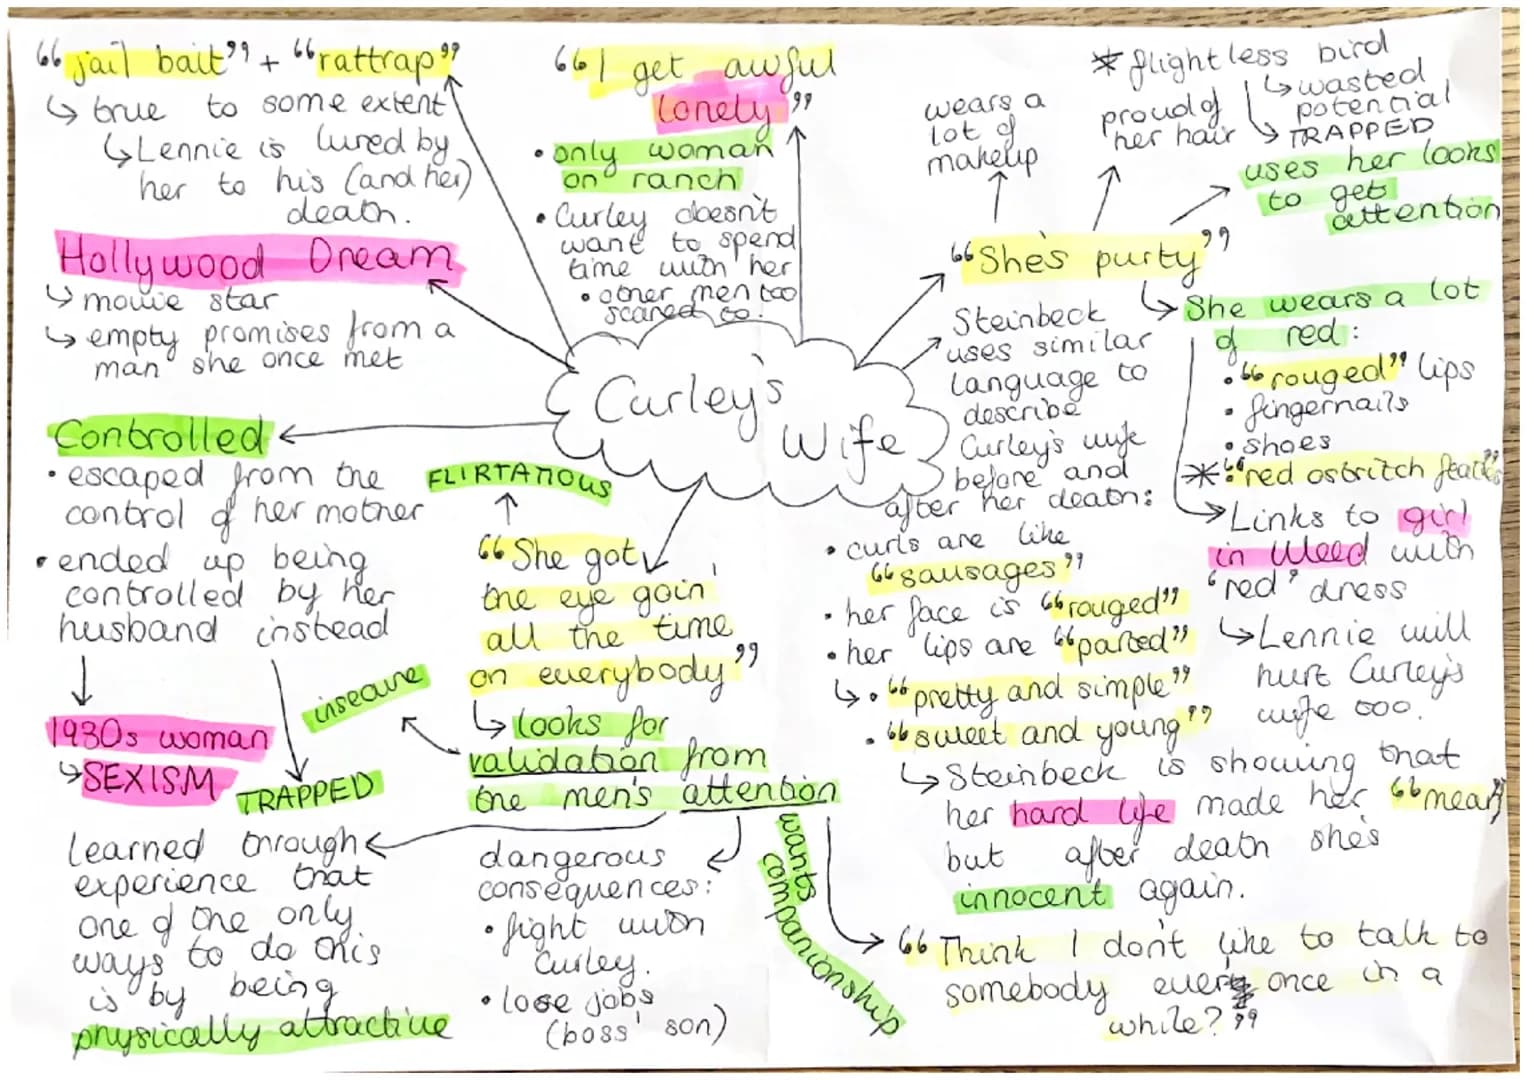 “jail bait” + “rattrap”
↳ true to some extent
↳ Lennie is lured by
her to his (and her)
death.
Hollywood Dream
↳ movie star
↳ empty promises from a
man she once met
Controlled
• escaped from the
control of her mother
• ended up being
controlled by her
husband instead
1930s woman
↳ SEXISM
TRAPPED
“I get awful
lonely”
• only woman
on ranch
• Curley doesn't
want to spend
time with her
• other men too
scared to.
Curley's
Wife
FLIRTATIOUS
“She got
the eye goin'
all the time
on everybody”
↳ looks for
validation from
the men's attention
insecure
learned through
experience that
one of the only
ways to do this
is by being
physically attractive
dangerous
consequences:
• fight with
Curley.
• lose jobs
(boss' son)
wants
companionship
“Think I don't like to talk to
somebody every once in a
while?”
“She's purty”
wears a
lot of
makeup
proud of
her hair
* flightless bird
↳ wasted
potential
↳ TRAPPED
uses her looks
to get
attention
↳ She wears a lot
of red:
• “rouged” lips
• fingernails
• shoes
* • “red ostritch feathers”
→ Links to girl
in Weed with
‘red’ dress
↳ Lennie will
hurt Curley's
wife too.
Steinbeck
uses similar
language to
describe
Curley's wife
before and
after her death:
• curls are like
“sausages”
• her face is “rouged”
• her lips are “parted”
↳ • “pretty and simple”
• “sweet and young”
↳ Steinbeck is showing that
her hard life made her “mean”
but after death she's
innocent again.